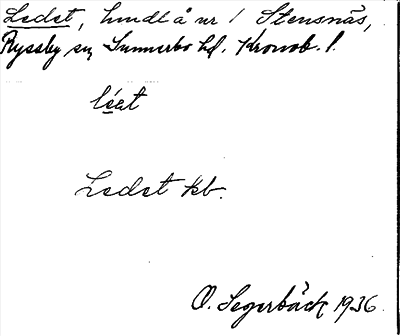 Ledet, hmdl å nr 1 Stensnäs,
Ryssby sn, Sunnerbo hd. Kronob. l.
léat
Ledet kb.
O. Segerbäck 1936